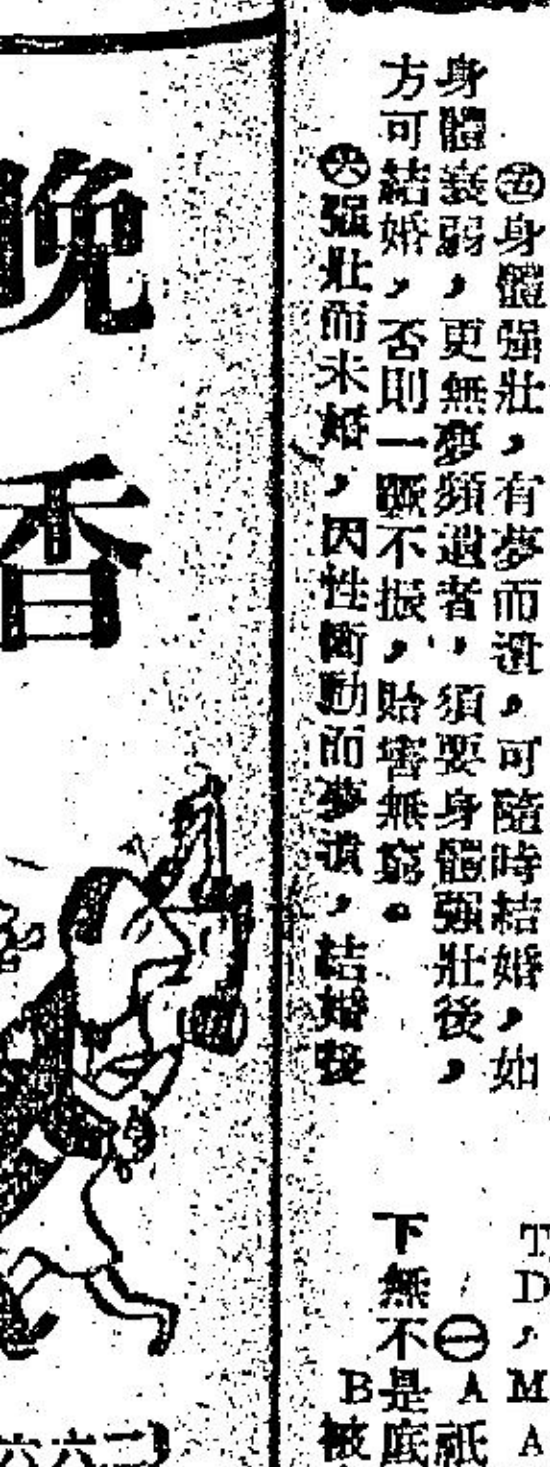 ㊄身體强壯，有夢而遺，可隨時結婚，如
身體衰弱，更無夢頻遺者，須要身體强壯後，
方可結婚，否則一蹶不振，貽害無窮。
㊅强壯而未婚，因性衝動而夢遺，結婚後
T
D，M A
㊀A紙
下無不是底
B被
晚香
二六六